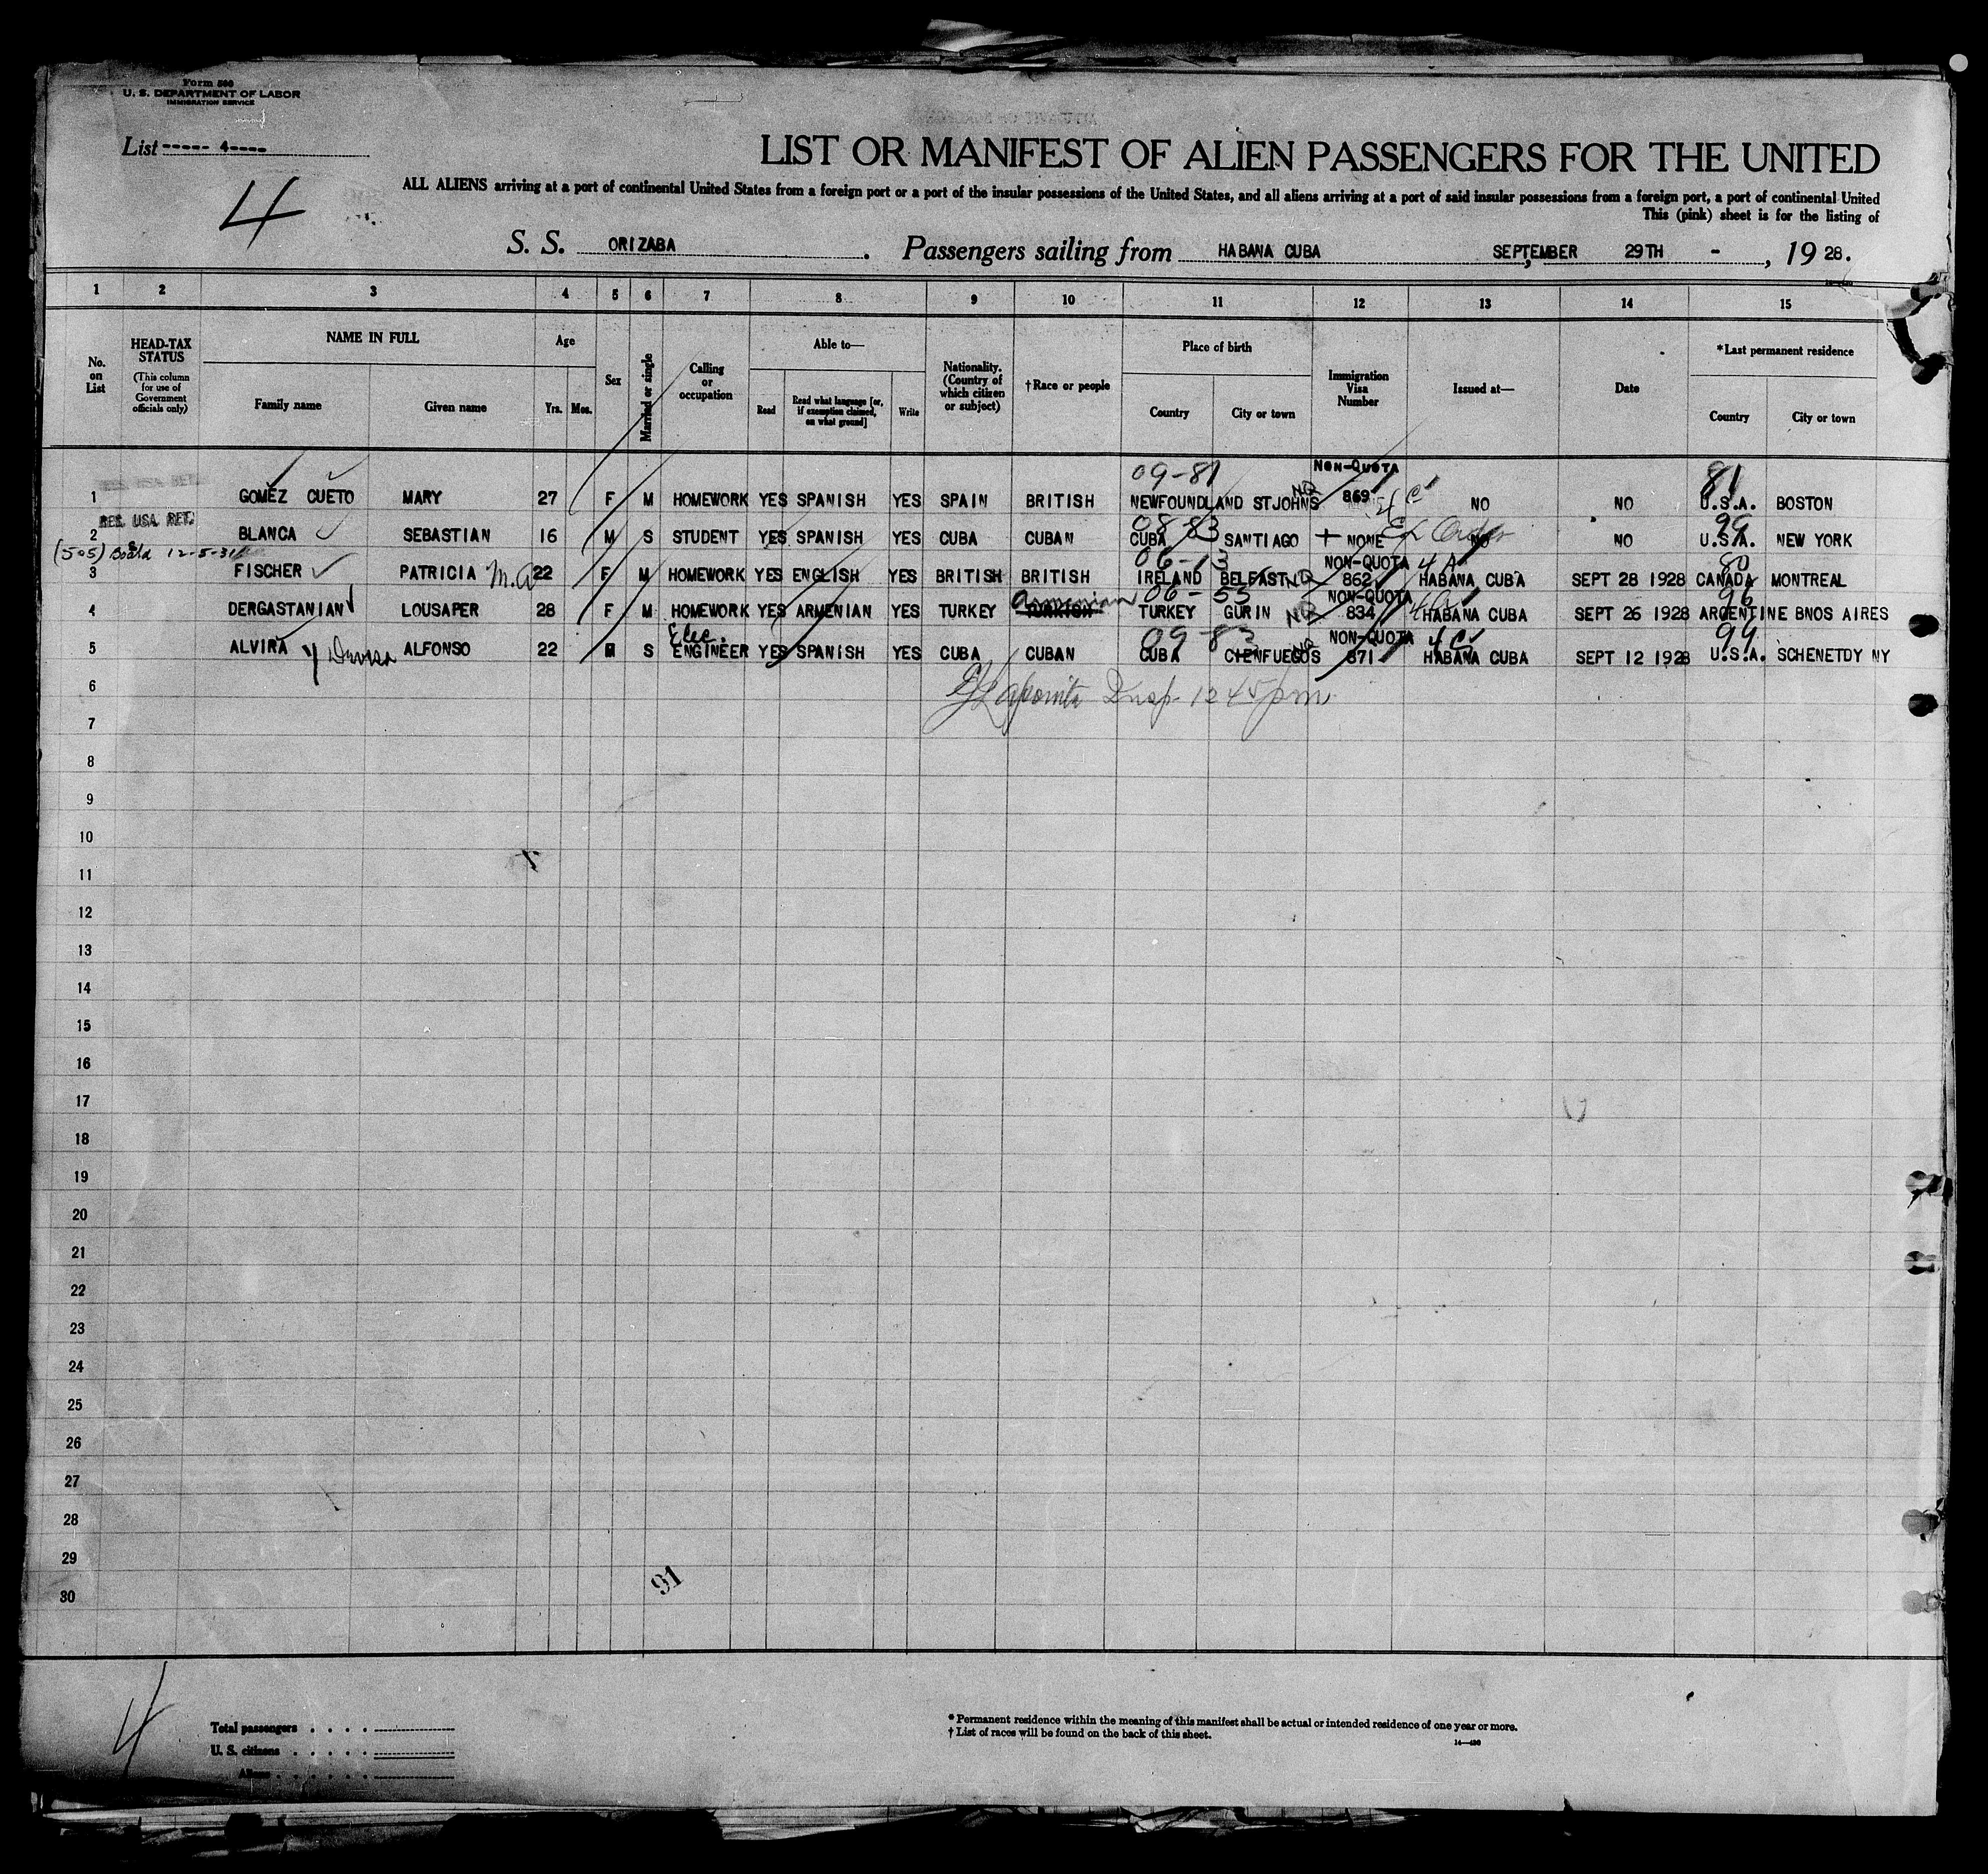 Form 500
U. S. DEPARTMENT OF LABOR
IMMIGRATION SERVICE
List ----- 4----
4
LIST OR MANIFEST OF ALIEN PASSENGERS FOR THE UNITED
ALL ALIENS arriving at a port of continental United States from a foreign port or a port of the insular possessions of the United States, and all aliens arriving at a port of said insular possessions from a foreign port, a port of continental United
This (pink) sheet is for the listing of
S. S. ORIZABA . Passengers sailing from HABANA CUBA SEPTEMBER 29TH - , 19 28.
1 2 3 4 5 6 7 8 9 10 11 12 13 14 15
No. on List
HEAD-TAX STATUS
(This column for use of Government officials only)
NAME IN FULL
Family name
Given name
Age
Yrs. Mos.
Sex
Married or single
Calling or occupation
Able to—
Read
Read what language [or, if exemption claimed, on what ground]
Write
Nationality. (Country of which citizen or subject)
†Race or people
Place of birth
Country
City or town
Immigration Visa Number
Issued at—
Date
*Last permanent residence
Country
City or town
09-81 NON-QUOTA 81
1 GOMEZ CUETO MARY 27 F M HOMEWORK YES SPANISH YES SPAIN BRITISH NEWFOUNDLAND ST JOHNS NQ 869 4 C NO NO U.S.A. BOSTON
RES. USA RET. 08-83 99
2 BLANCA SEBASTIAN 16 M S STUDENT YES SPANISH YES CUBA CUBAN CUBA SANTIAGO + NONE NO NO U.S.A. NEW YORK
(505) 12-5-31 06-13 NON-QUOTA 4 A 80
3 FISCHER PATRICIA M.A 22 F M HOMEWORK YES ENGLISH YES BRITISH BRITISH IRELAND BELFAST NQ 862 HABANA CUBA SEPT 28 1928 CANADA MONTREAL
Armenian 06-55 NON-QUOTA 96
4 DERGASTANIAN LOUSAPER 28 F M HOMEWORK YES ARMENIAN YES TURKEY TURKISH TURKEY GURIN NQ 834 HABANA CUBA SEPT 26 1928 ARGENTINE BNOS AIRES
Elec. 09-83 NON-QUOTA 4 C 99
5 ALVIRA y ALFONSO 22 M S ENGINEER YES SPANISH YES CUBA CUBAN CUBA CIENFUEGOS NQ 871 HABANA CUBA SEPT 12 1928 U.S.A. SCHENETDY NY
6 Insp. 12 45 pm
7
8
9
10
11
12
13
14
15
16
17
18
19
20
21
22
23
24
25
26
27
28
29
30
91
4
Total passengers
U. S. citizens
Aliens
* Permanent residence within the meaning of this manifest shall be actual or intended residence of one year or more.
† List of races will be found on the back of this sheet.
14—430